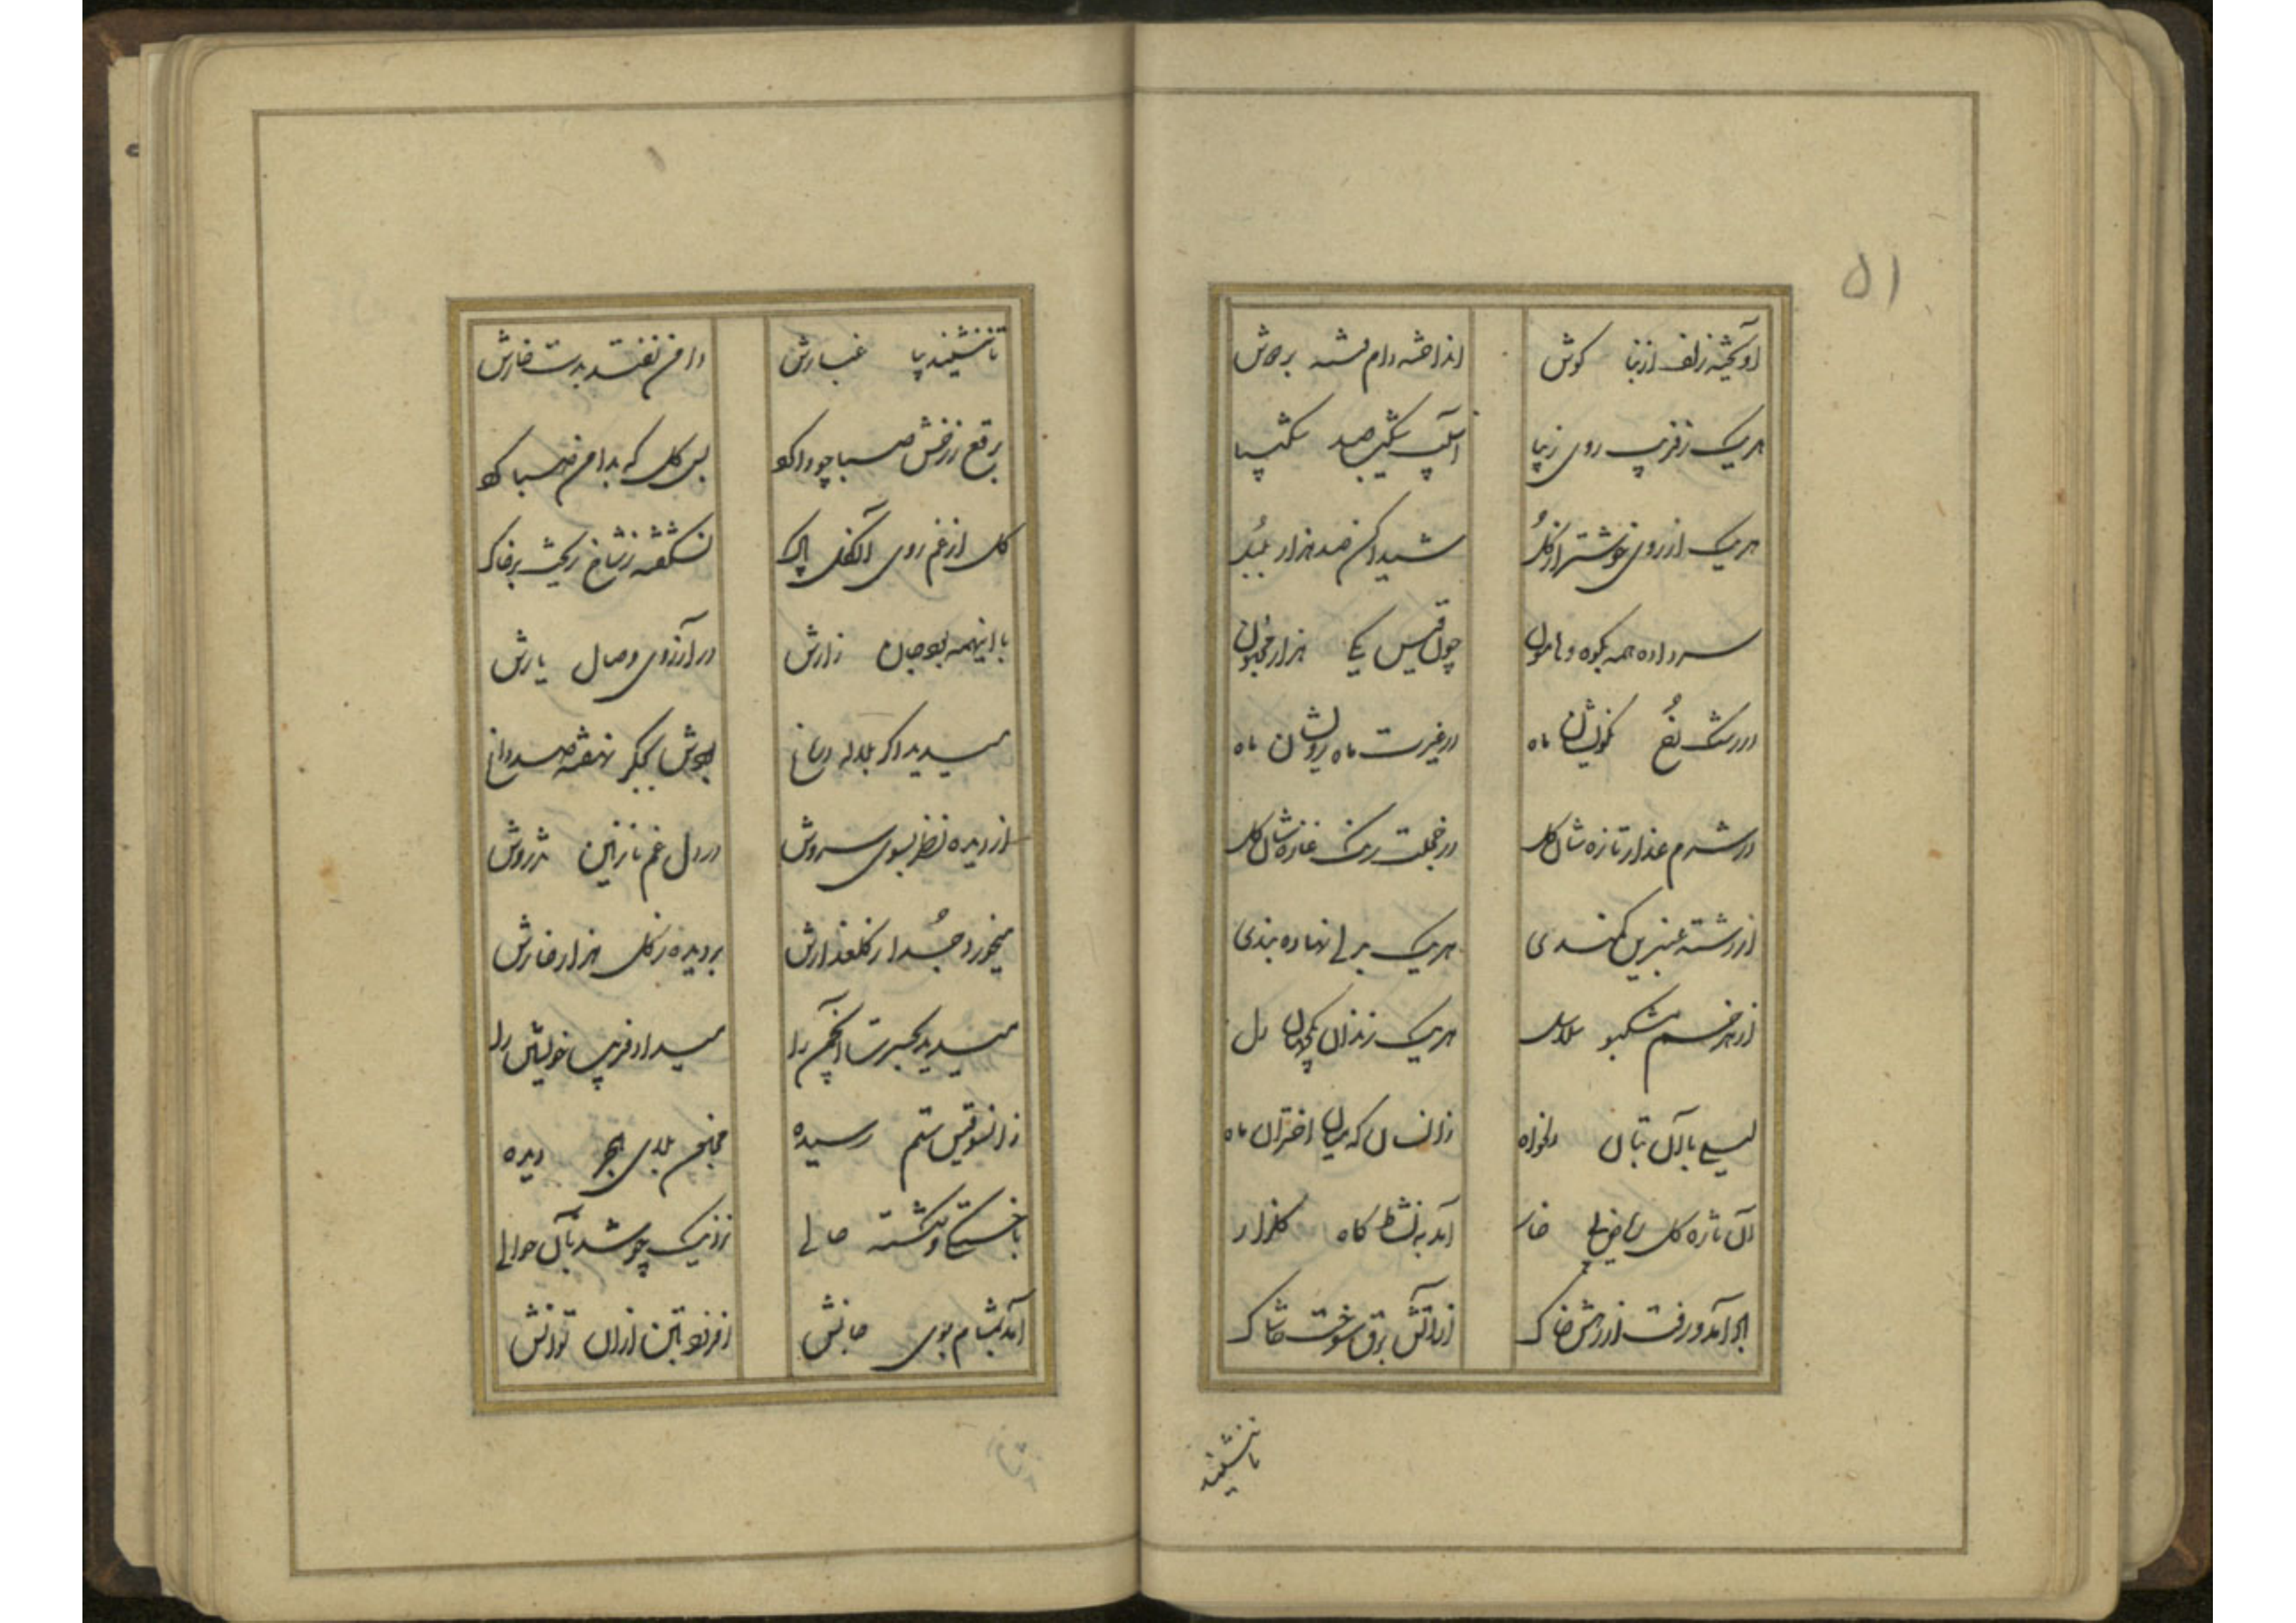 ۵۱
آویخته زلف از بنا گوش انداخته دام فتنه بر دوش
هر یک ز فریب روی زیبا آسیب شکیب صد شکیبا
هر یک از روی خوشتر از گل شیدا کن صد هزار بلبل
سر داده همه بکوه و هامون چون قیس یکی هزار مجنون
در رشک رخ نکویشان ماه در غیرت ماه رویشان ماه
در شرم عذار تازه شان گل در خجلت رنگ غازه شان گل
از رشته عنبرین کمندی هر یک برهی نهاده بندی
از هر خم مشکبو سلاسل هر یک زندان یکجهان دل
لیلی با آن بتان دلخواه زانسان که میان اختران ماه
آن تازه گل ریاض بی خار آمد به نشاط گاه گلزار
ابر آمد و رفت از رهش خاک از آتش برق سوخت خاشاک
تا ننشیند
تا ننشیند بپا غبارش دامن نفتد بدست خارش
برقع ز رخش صبا چو وا کرد بس گل که بدامن صبا کرد
گل از غم روی آن گل پاک نشکفته ز شاخ ریخت بر خاک
با اینهمه بود جان زارش در آرزوی وصال یارش
میدید اگر بلاله باغ بودش بجگر نهفته صد داغ
از دیده نظر بسوی سروش در دل غم نازنین تذروش
میخورد جدا ز گلعذارش بر دیده ز گل هزار خارش
میدید بحسرت انجمن را میداد فریب خویشتن را
زانسو قیس ستم رسیده مجنون بلای هجر دیده
با خستگی و شکسته حالی نزدیک چو شد بآن حوالی
آمد بمشام بوی جانش افزود بتن ازان توانش